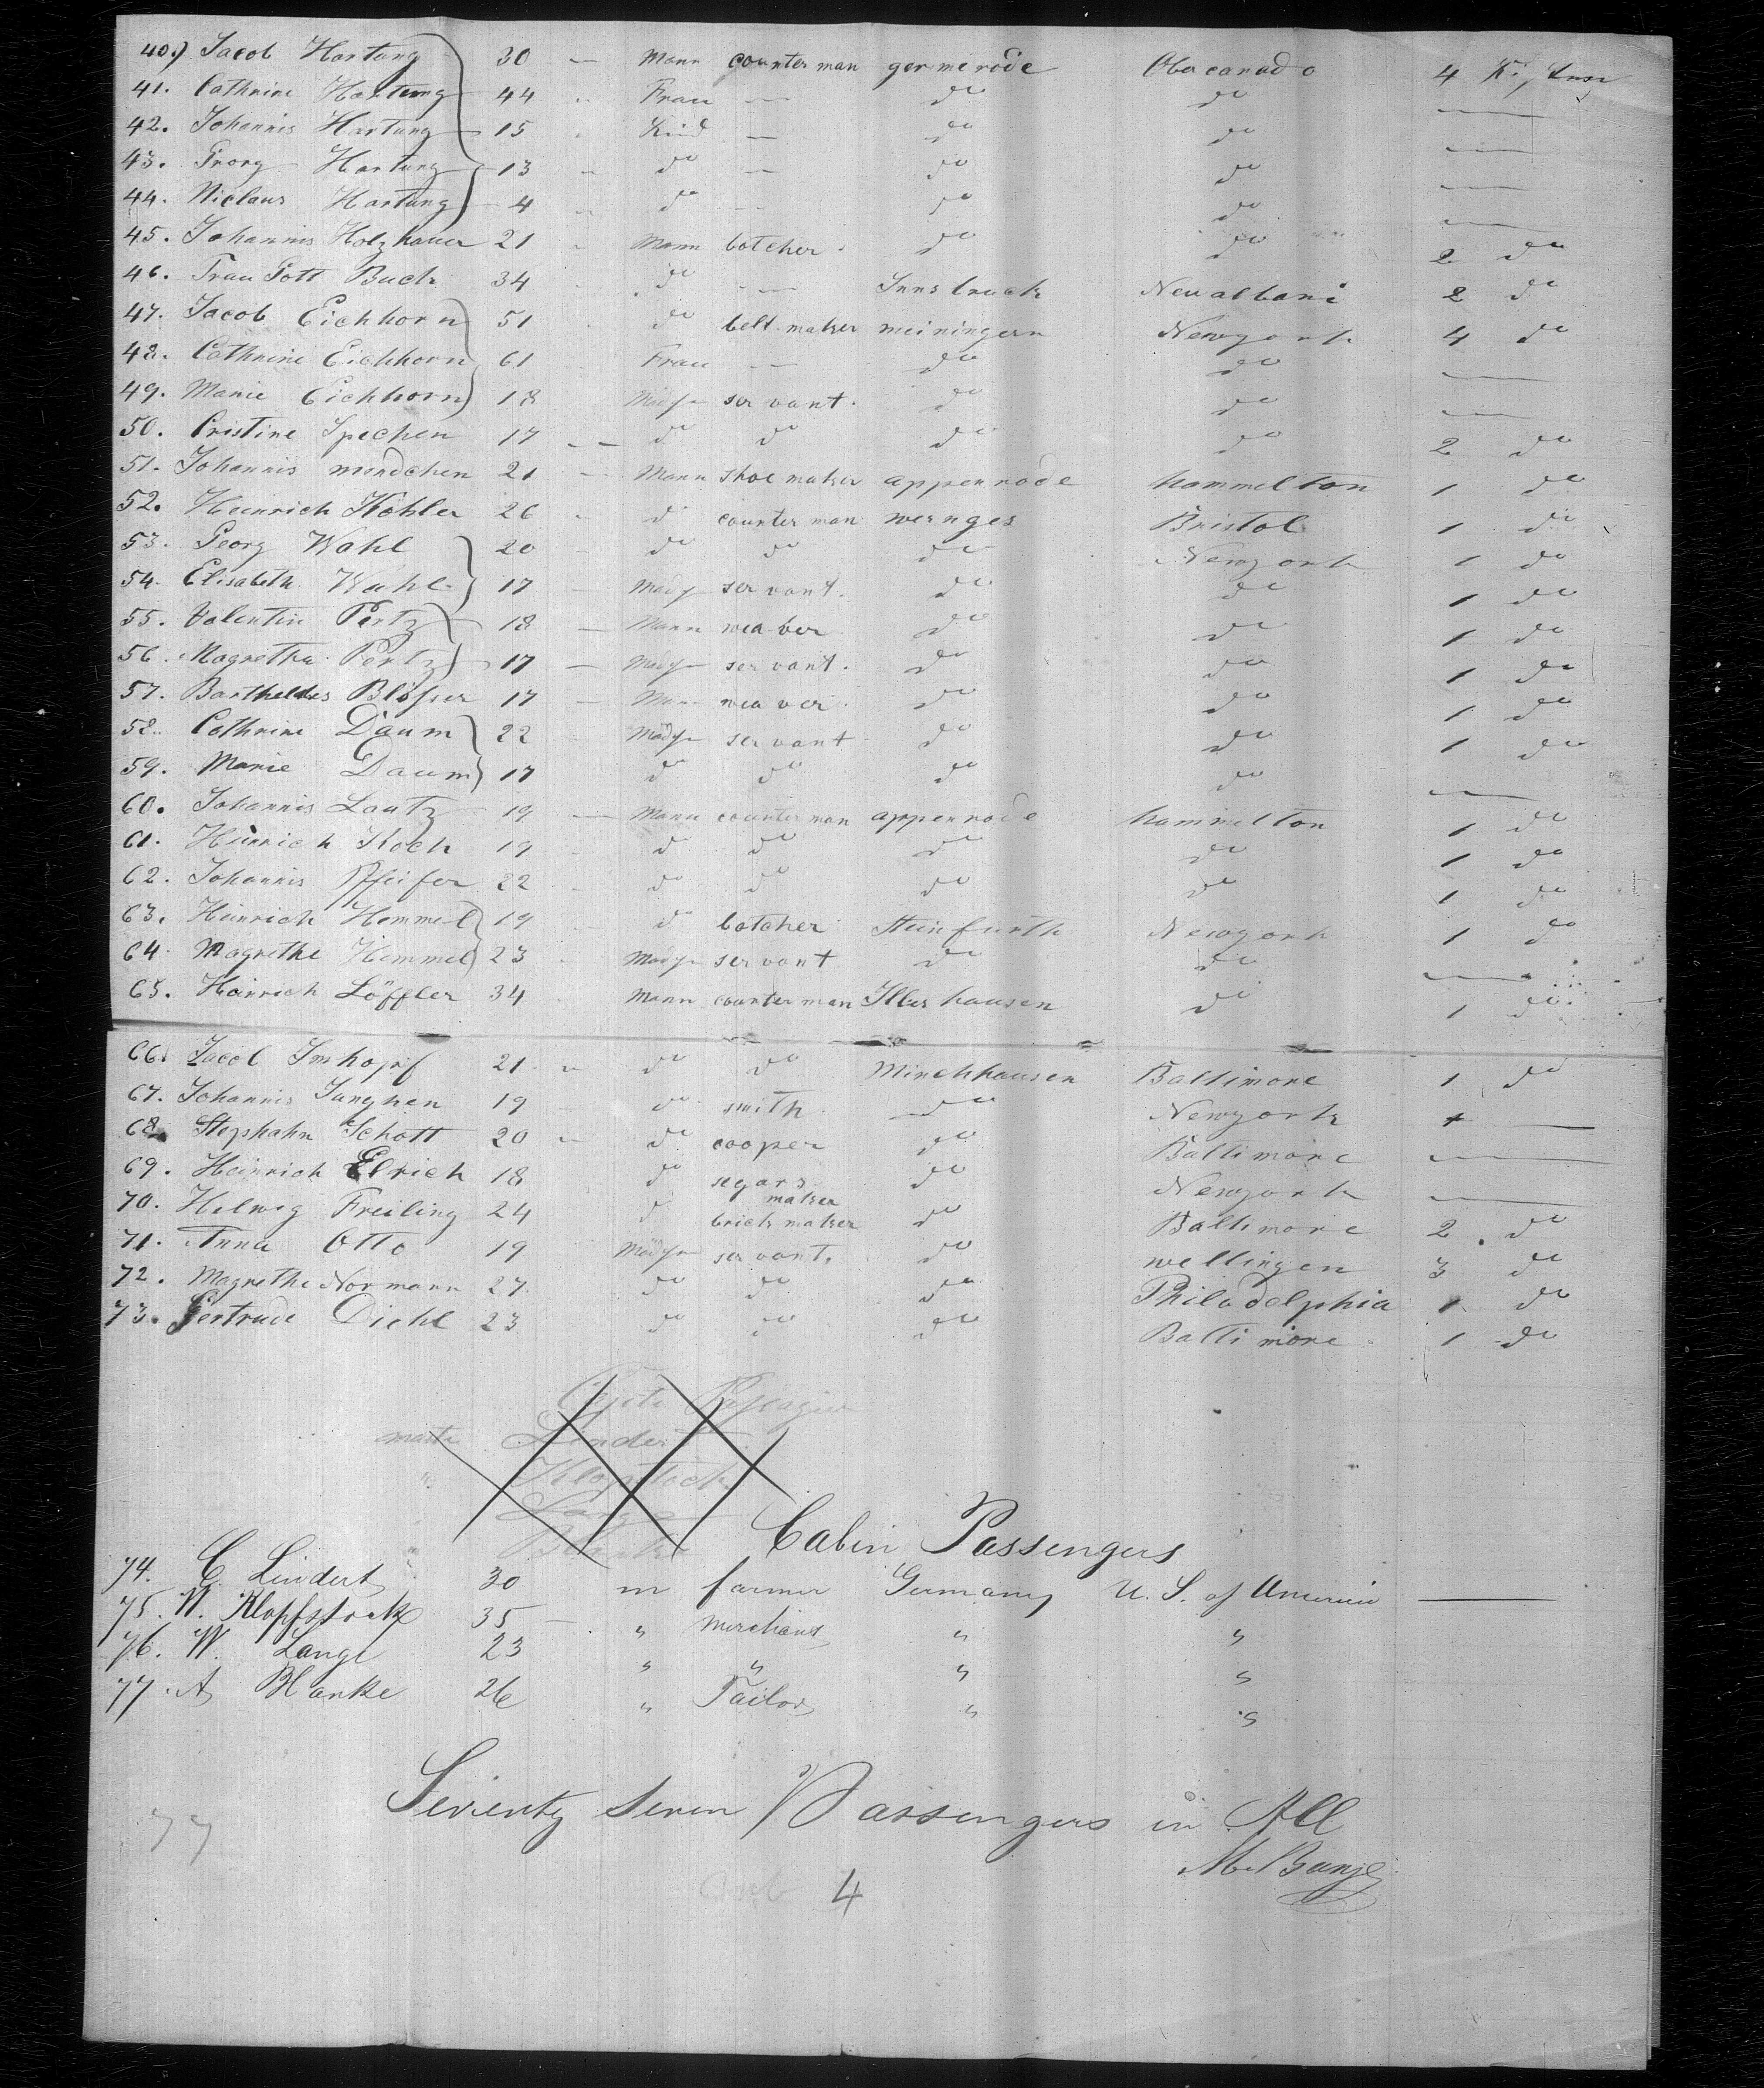 40.) Jacob Hartung 30 — Mann counter man germerode Obercanado 4 Kis
41. Cathrine Hartung 44 " Frau — do do —
42. Johannis Hartung 15 Kind — do do —
43. Georg Hartung 13 do — do do —
44. Niclaus Hartung 4 do — do do —
45. Johannis Holzhauer 21 Mann botcher do do 2 do
46. Trau Gott Buch 34 do — Innsbruck Neualbani 2 do
47. Jacob Eichhorn 51 do belt maker meiningern Newyork 4 do
48. Cathrine Eichhorn 61 Frau — do do —
49. Marie Eichhorn 18 servant. do do —
50. Cristine Spechen 17 — do do do do 2 do
51. Johannis mendchen 21 — Mann shoe maker appenrode hammelton 1 do
52. Heinrich Kohler 26 " do counter man wernges Bristol 1 do
53. Georg Wahl 20 do do do Newyork 1 do
54. Elisabeth Wahl 17 servant. do do 1 do
55. Valentin Pertz 18 — Mann weaber do do 1 do
56. Magretha Pertz 17 — servant. do do 1 do
57. Blösser 17 — Mann weaver. do do 1 do
58. Cathrine Daum 22 servant do do 1 do
59. Marie Daum 17 do do do do —
60. Johannis Lautz 19 — Mann counter man appenrode hammelton 1 do
61. Heinrich Koch 19 do do do do 1 do
62. Johannis Pfeifer 22 do do do do 1 do
63. Heinrich Hemmel 19 do botcher Steinfurth Newyork 1 do
64. Magrethe Hemmel 23 servant do do —
65. Heinrich Löffler 34 Mann counter man Illershausen do 1 do
66. Jacob Imhopf 21 " do do Minchhausen Baltimore 1 do
67. Johannis Junghen 19 do smith do Newyork —
68. Stephahn Schott 20 " do cooper do Baltimore —
69. Heinrich Elrich 18 do segars maker do Newyork —
70. Helwig Freiling 24 do brick maker do Baltimore 2 do
71. Anna Otto 19 servant. do wellingen 3 do
72. Magrethe Normann 27 do do do Philadelphia 1 do
73. Gertrude Diehl 23 do do do Baltimore 1 do
Lindert
Klopstock
Cabin Passengers
74. C. Lindert 30 m farmer Germany U. S. of America —
75. W. Klopfstock 35 — " Merchant " "
76. W. Lange 23 " " " "
77. A Hanke 26 " Tailor " "
Seventy seven Passengers in All
77
cab 4